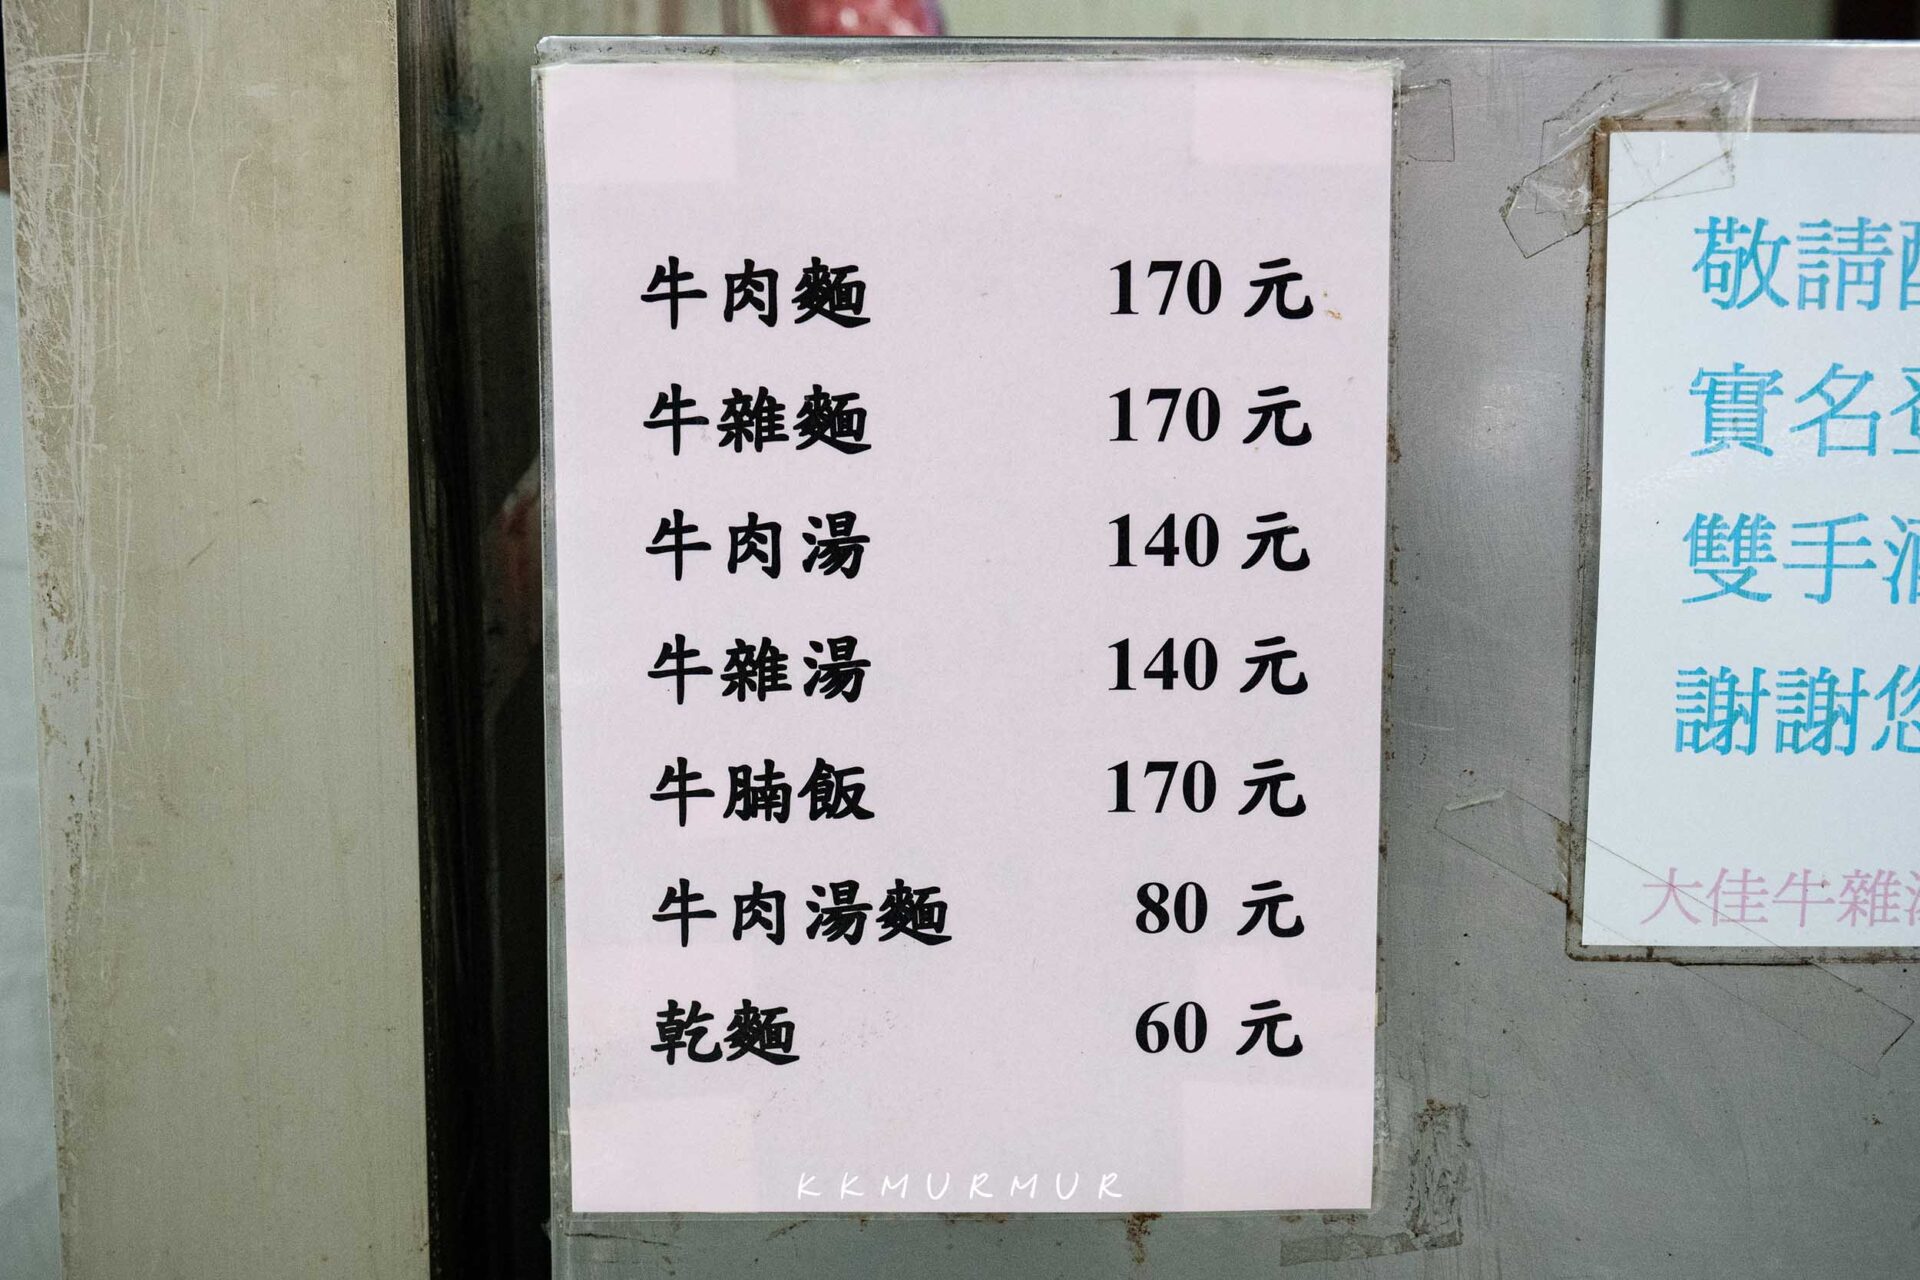 牛肉麵 170 元
牛雜麵 170 元
牛肉湯 140 元
牛雜湯 140 元
牛腩飯 170 元
牛肉湯麵 80 元
乾麵 60 元
KKMURMUR
敬請
實名
雙手
謝謝您
大佳牛雜